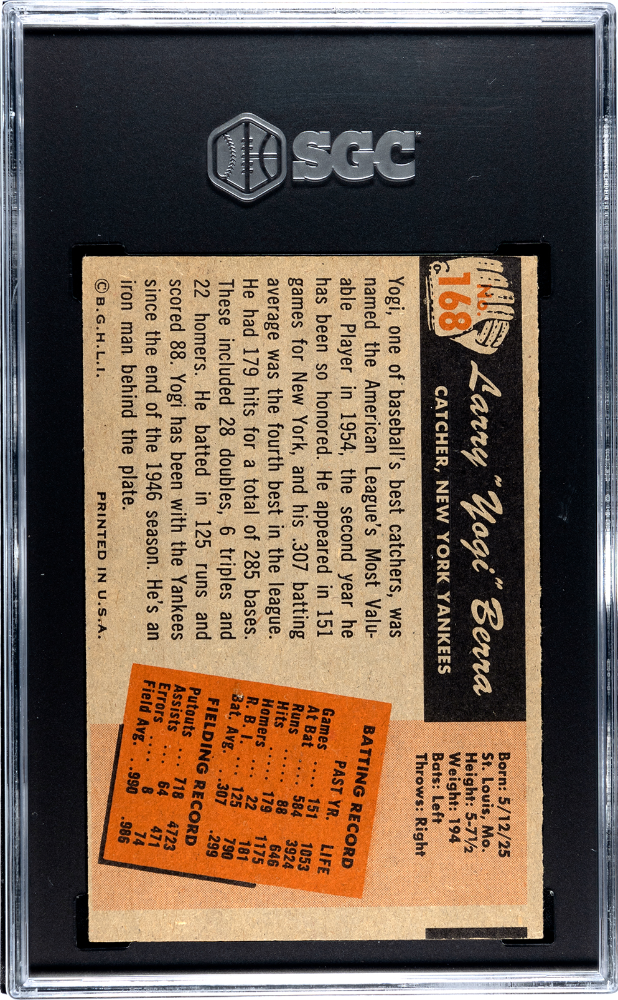 SGC
No.
168
Larry "Yogi" Berra
CATCHER, NEW YORK YANKEES
Born: 5/12/25
St. Louis, Mo.
Height: 5-7½
Weight: 194
Bats: Left
Throws: Right
Yogi, one of baseball's best catchers, was
named the American League's Most Valu-
able Player in 1954, the second year he
has been so honored. He appeared in 151
games for New York, and his .307 batting
average was the fourth best in the league.
He had 179 hits for a total of 285 bases.
These included 28 doubles, 6 triples and
22 homers. He batted in 125 runs and
scored 88. Yogi has been with the Yankees
since the end of the 1946 season. He's an
iron man behind the plate.
© B.G.H.L.I. PRINTED IN U.S.A.
BATTING RECORD
PAST YR. LIFE
Games .... 151 1053
At Bat .... 584 3924
Runs ..... 88 646
Hits ...... 179 1175
Homers .... 22 181
R. B. I. .... 125 790
Bat. Avg. .. .307 .299
FIELDING RECORD
Putouts .... 718 4723
Assists .... 64 471
Errors ..... 8 74
Field Avg. .. .990 .986